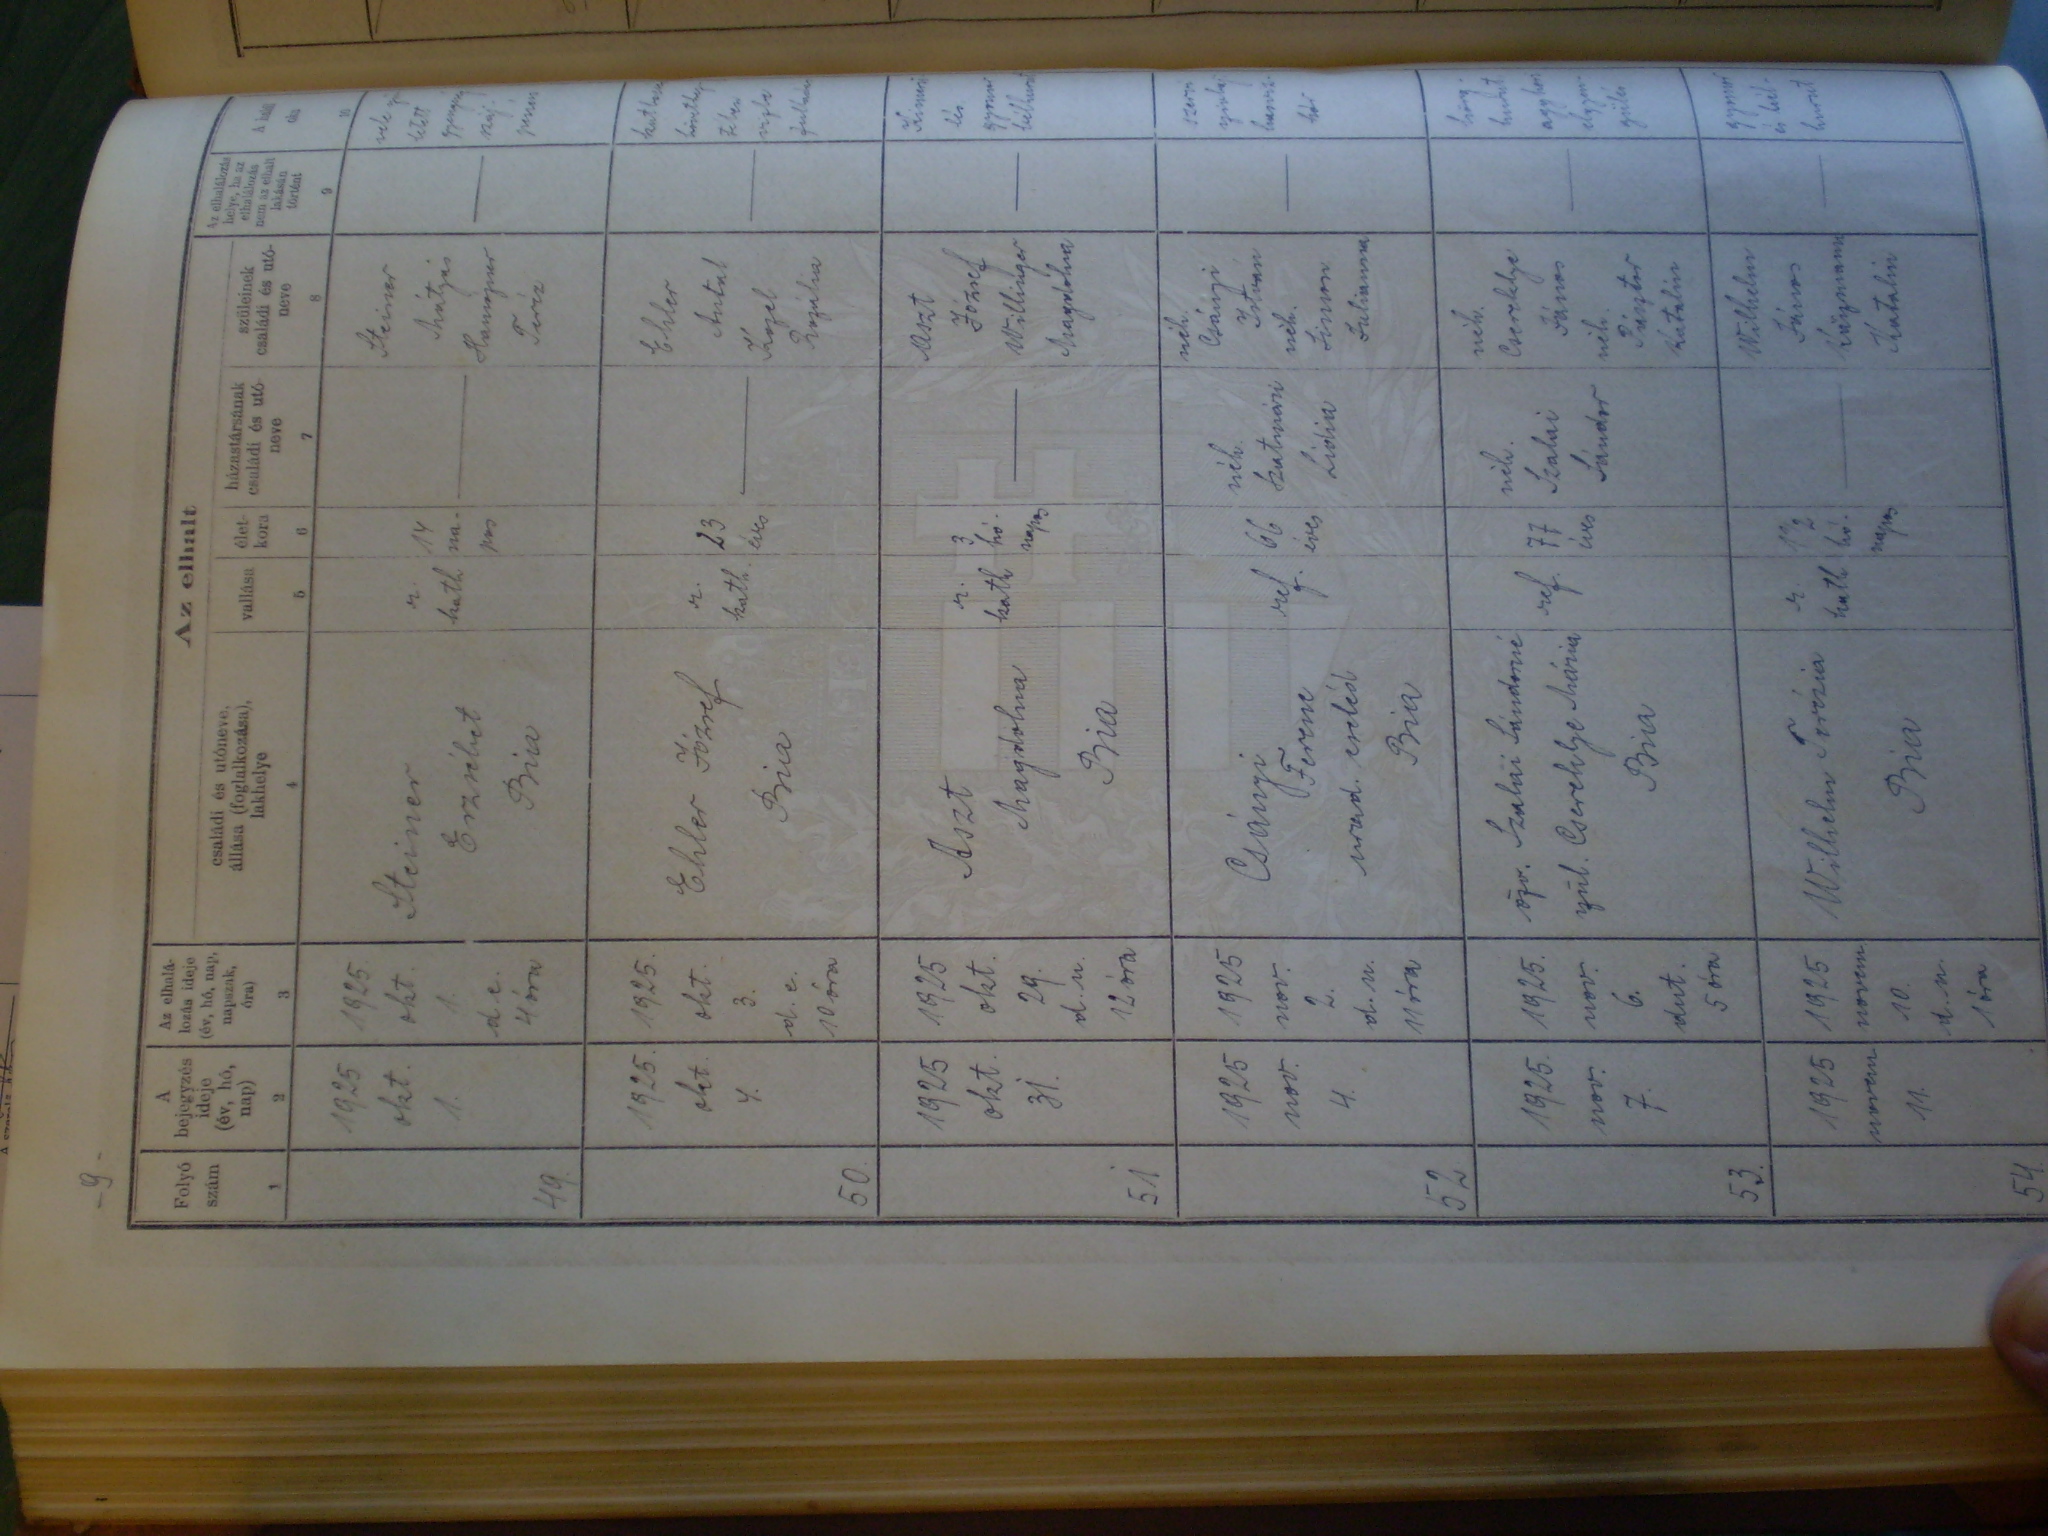 - 9 -
Az elhalt
Folyó
szám
A
bejegyzés
ideje
(év, hó,
nap)
Az elhalá-
lozás ideje
(év, hó, nap,
napszak,
óra)
családi és utóneve,
állása (foglalkozása),
lakhelye
vallása
élet-
kora
házastársának
családi és utó-
neve
szüleinek
családi és utó-
neve
Az elhalálozás
helye, ha az
elhalálozás
nem az elhalt
lakásán
történt
A halál
oka
1
2
3
4
5
6
7
8
9
10
49.
1925
okt.
1.
1925.
okt.
1.
d. e.
4 óra
Steiner
Erzsébet
Bia
r.
kath
14
na-
pos
Steiner
Mátyás
Teréz
50.
1925.
okt.
4.
1925.
okt.
3.
d. e.
10 óra
Ehler József
Bia
r.
kath.
23
éves
Ehler
Antal
Rozália
51
1925
okt.
31.
1925
okt.
29.
d. u.
12 óra
Aszt
Magdolna
Bia
r.
kath
3
hó-
napos
Aszt
József
Willinger
Magdolna
gyomor
bélhurut
52
1925
nov.
4.
1925
nov.
2.
d. u.
11 óra
Csányi
Ferenc
urad. cseléd
Bia
ref.
66
éves
néh.
Szatmári
Lidia
néh.
Csányi
István
néh.
Simon
Julianna
53.
1925.
nov.
7.
1925.
nov.
6.
dut.
5 óra
özv. Szalai Sándorné
szül. Cserehlye Mária
Bia
ref.
77
éves
néh.
Szalai
Sándor
néh.
Cserehlye
János
néh.
Pásztor
Katalin
54.
1925
novem
11.
1925
novem
10.
d. u.
1 óra
Wilhelm Terézia
Bia
r.
kath
hó-
napos
Wilhelm
János
Katalin
gyomor
és bél-
hurut